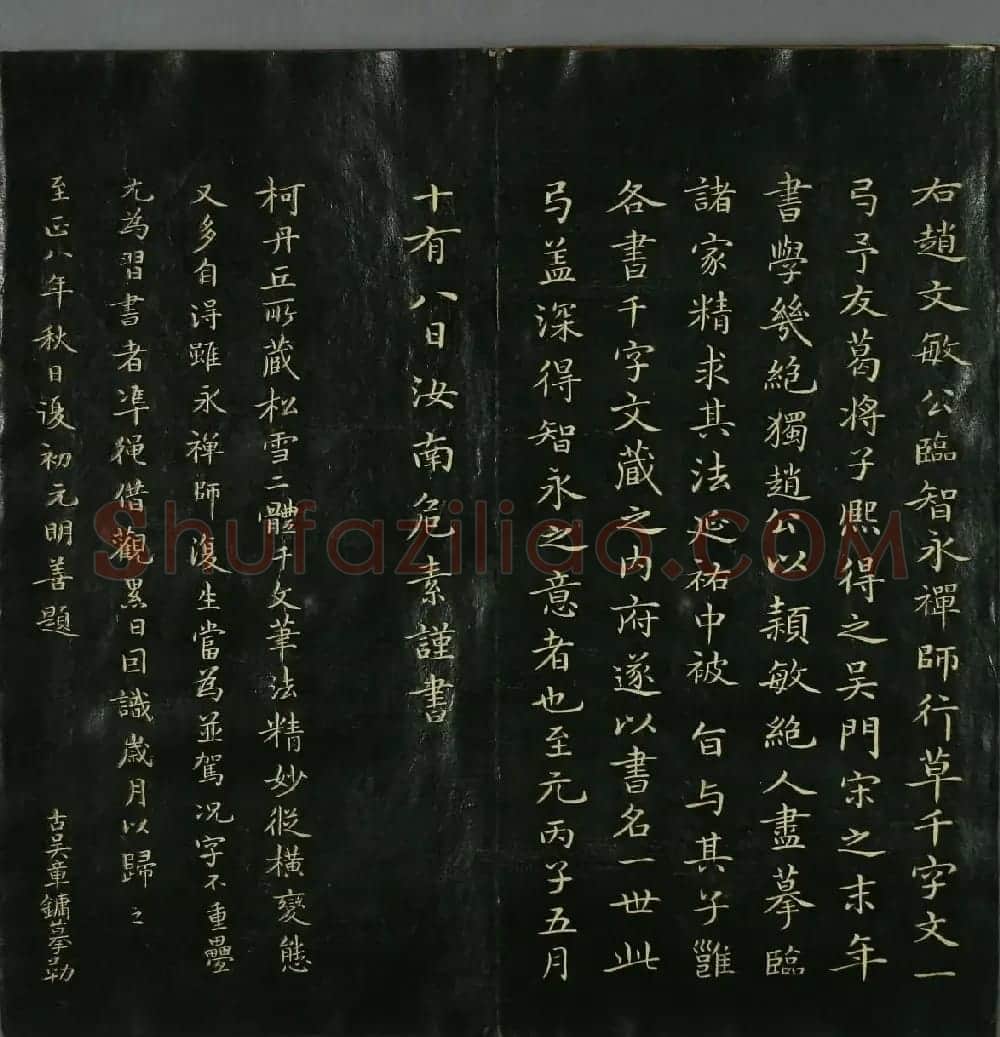 右趙文敏公臨智永禪師行草千字文一
弓予友葛將子熙得之吴門宋之末年
書學幾絕獨趙公以穎敏絕人盡摹臨
諸家精求其法延祐中被 旨与其子雝
各書千字文藏之内府遂以書名一世此
弓盖深得智永之意者也至元丙子五月
十有八日汝南危素謹書
柯丹丘所蔵松雪二體千文筆法精妙縱橫變態
又多自得雖永禪師復生當為並駕况字不重疊
尤為習書者準繩借觀累日因識嵗月以歸之
至正八年秋日復初元明善題
古吴章鏞摹勒
Shufaziliao.COM